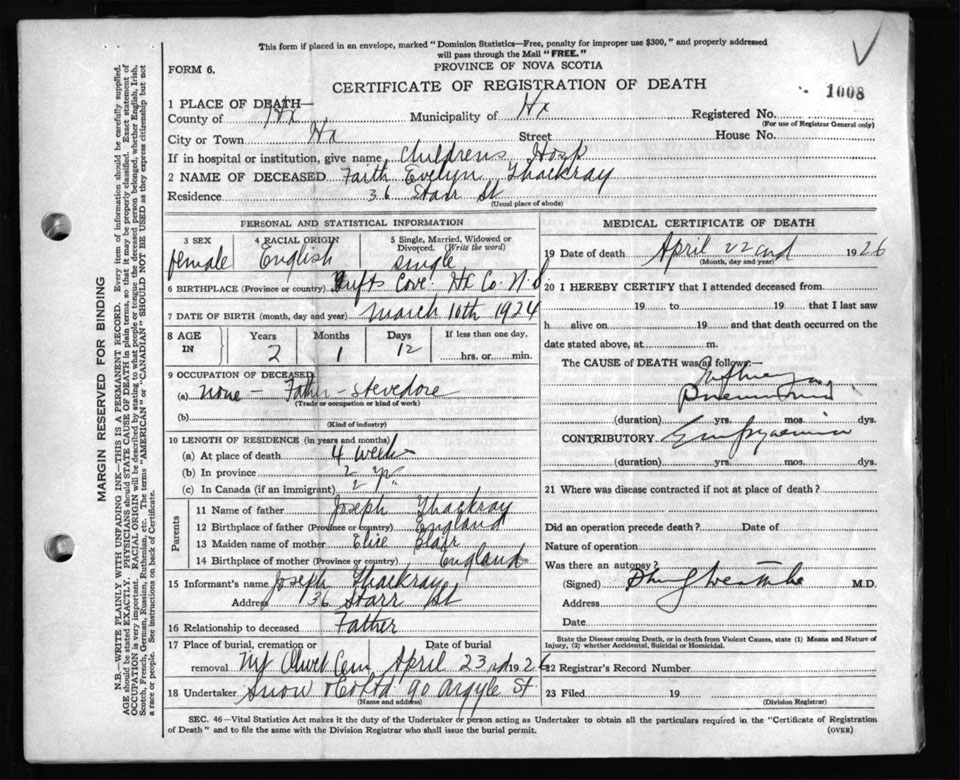 This form if placed in an envelope, marked "Dominion Statistics—Free, penalty for improper use $300," and properly addressed
will pass through the Mail "FREE."
FORM 6.
PROVINCE OF NOVA SCOTIA
CERTIFICATE OF REGISTRATION OF DEATH
1008
1 PLACE OF DEATH—
County of Hx Municipality of Hx Registered No.
(For use of Registrar General only)
City or Town Hx Street House No.
If in hospital or institution, give name Childrens Hosp
2 NAME OF DECEASED Faith Evelyn Thackray
Residence 36 Starr St
(Usual place of abode)
PERSONAL AND STATISTICAL INFORMATION
3 SEX 4 RACIAL ORIGIN 5 Single, Married, Widowed or
Divorced. (Write the word)
female English single
6 BIRTHPLACE (Province or country) Tufts Cove. Hx Co. N.S
7 DATE OF BIRTH (month, day and year) March 10th 1924
8 AGE IN Years Months Days If less than one day,
2 1 12 hrs. or min.
9 OCCUPATION OF DECEASED
(a) none — Father - Stevedore
(Trade or occupation or kind of work)
(b)
(Kind of industry)
10 LENGTH OF RESIDENCE (in years and months)
(a) At place of death 4 weeks
(b) In province 2 yr
(c) In Canada (if an immigrant) 2 yr
Parents
11 Name of father Joseph Thackray
12 Birthplace of father (Province or country) England
13 Maiden name of mother Blair
14 Birthplace of mother (Province or country) England
15 Informant's name Joseph Thackray
Address 36 Starr St
16 Relationship to deceased Father
17 Place of burial, cremation or Date of burial
removal Mt Olivet Cem April 23rd 1926
18 Undertaker Snow & Co Ltd 90 Argyle St.
(Name and address)
MEDICAL CERTIFICATE OF DEATH
19 Date of death April 22nd 1926
(Month, day and year)
20 I HEREBY CERTIFY that I attended deceased from
19 to 19 that I last saw
h alive on 19 and that death occurred on the
date stated above, at m.
The CAUSE OF DEATH was as follow—
Pneumonia
(duration) yrs. mos. dys.
CONTRIBUTORY Empyemia
(duration) yrs. mos. dys.
21 Where was disease contracted if not at place of death?
Did an operation precede death? Date of
Nature of operation
Was there an autopsy?
(Signed) M.D.
Address
Date
State the Disease causing Death, or in death from Violent Causes, state (1) Means and Nature of
Injury, (2) whether Accidental, Suicidal or Homicidal.
22 Registrar's Record Number
23 Filed 19
(Division Registrar)
SEC. 46—Vital Statistics Act makes it the duty of the Undertaker or person acting as Undertaker to obtain all the particulars required in the "Certificate of Registration
of Death" and to file the same with the Division Registrar who shall issue the burial permit.
(OVER)
MARGIN RESERVED FOR BINDING
N.B.—WRITE PLAINLY, WITH UNFADING INK—THIS IS A PERMANENT RECORD. Every item of information should be carefully supplied.
AGE should be stated EXACTLY. PHYSICIANS should STATE CAUSE OF DEATH in plain terms, so that it may be properly classified. Exact statement of
OCCUPATION is very important. RACIAL ORIGIN will be described by stating to what people or tongue the deceased person belonged, whether English, Irish,
Scotch, French, German, Russian, Ruthenian, etc. The terms "AMERICAN" or "CANADIAN" SHOULD NOT BE USED as they express citizenship but not
a race or people. See instructions on back of Certificate.